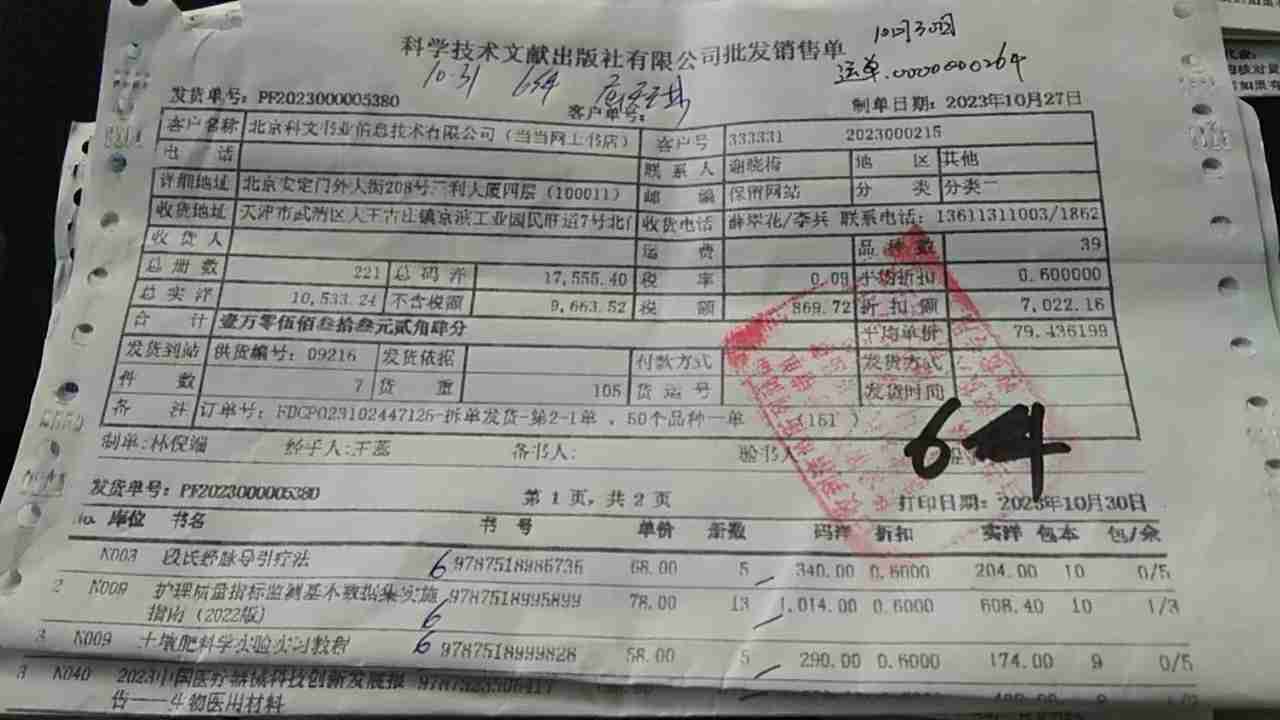 科学技术文献出版社有限公司批发销售单
10月30日
运单.0000000264
10.31 654
发货单号: PF2023000005380 客户单号: 制单日期: 2023年10月27日
客户名称 北京科文书业信息技术有限公司（当当网上书店） 客户号 333331 2023000215
电 话 联系人 谢晓梅 地 区 其他
详细地址 北京安定门外大街208号三利大厦四层（100011） 邮 编 保留网站 分 类 分类一
收货地址 天津市武清区大王古庄镇京滨工业园民旺道7号北门 收货电话 薛翠花/李兵 联系电话: 13611311003/1862
收 货 人 运 费 品 种 数 39
总 册 数 221 总 码 洋 17,555.40 税 率 0.09 平均折扣 0.600000
总 实 洋 10,533.24 不含税额 9,663.52 税 额 869.72 折 扣 额 7,022.16
合 计 壹万零伍佰叁拾叁元贰角肆分 平均单价 79.436199
发货到站 供货编号: 09216 发货依据 付款方式 发货方式
件 数 7 货 重 105 货 运 号 发货时间
备 注 订单号: -拆单发货-第2-1单 , 50个品种一单 （161 ）
64
制单: 林保端 经手人:王蕊 备书人: 验书人
发货单号: PF2023000005380 第 1 页, 共 2 页 打印日期: 2023年10月30日
No 库位 书名 书 号 单价 册数 码洋 折扣 实洋 包本 包/余
N003 段氏舒脉导引疗法 6 9787518986736 68.00 5 340.00 0.6000 204.00 10 0/5
2 N009 护理质量指标监测基本数据集实施 9787518995899 78.00 13 1,014.00 0.6000 608.40 10 1/3
指南（2022版） 6
3 N009 土壤肥料学实验实习教程 6 9787518999828 58.00 5 290.00 0.6000 174.00 9 0/5
3 N040 2023中国医疗器械科技创新发展报
告——生物医用材料